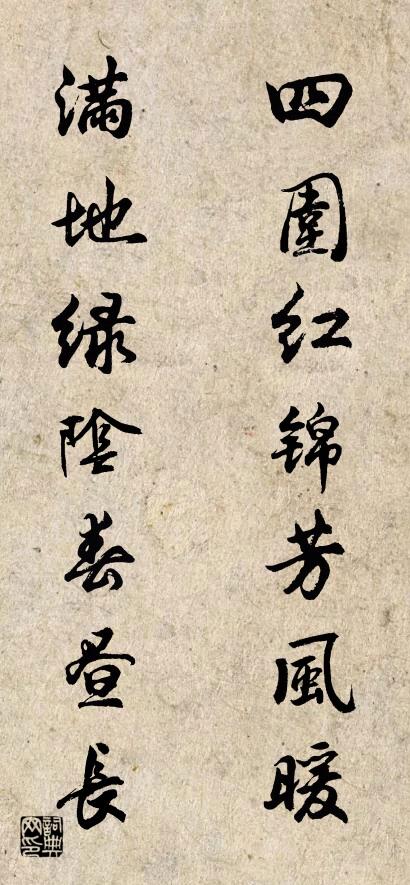 四圍红锦芳風暖
满地绿陰春昼長
詞典网印